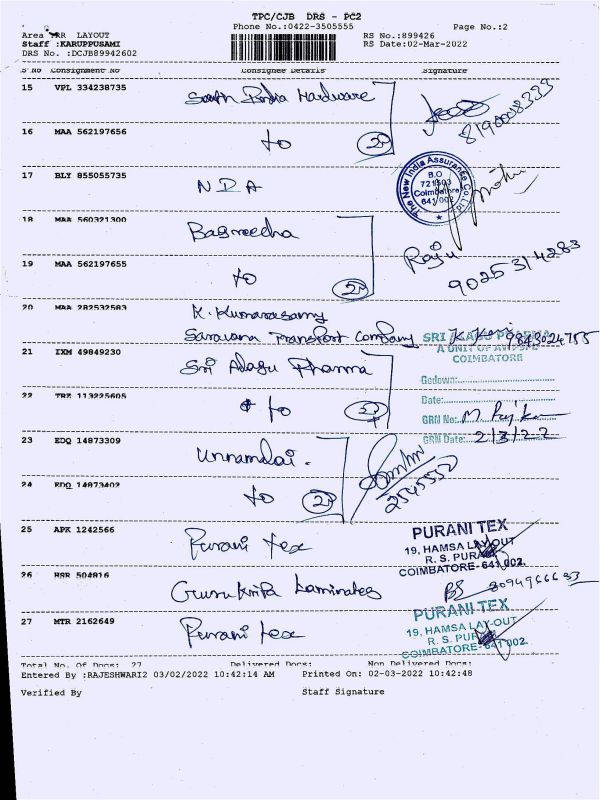 TPC/CJB DRS - PC2
Phone No.:0422-3505555 Page No.:2
Area :RR LAYOUT RS No.:899426
Staff :KARUPPUSAMI RS Date:02-Mar-2022
DRS No. :DCJB89942602
S No Consignment No Consignee Details Signature
15 VPL 334238735 South India Hardware
8190008333
16 MAA 562197656 to
17 BLY 855055735 NDA
The New India Assurance Co.Ltd.
B.O
721503
Coimbatore
641 002
18 MAA 560321300
Raju
19 MAA 562197655 to
9025314283
20 MAA 282532583 K. Kumarasamy
Saravana Transport Company 9843024755
SRI PHARMA
A UNIT OF
COIMBATORE
21 IXM 49849230 Sri Alagu Pharma
Godown:
22 TRZ 113225605 to
Date:
GRN No:
GRN Date: 2/3/22
23 EDQ 14873309 Unnamalai.
24 EDQ 14873402 to
25 APK 1242566 Purani tex
PURANI TEX
19, HAMSA LAY-OUT
R. S. PURAM
COIMBATORE-641 002.
26 HSR 504816 Gurukripa Laminates
27 MTR 2162649 Purani tex
PURANI TEX
19, HAMSA LAY-OUT
R. S. PURAM
COIMBATORE-641 002.
Total No. Of Docs: 27 Delivered Docs: Non Delivered Docs:
Entered By :RAJESHWARI2 03/02/2022 10:42:14 AM Printed On: 02-03-2022 10:42:48
Verified By Staff Signature